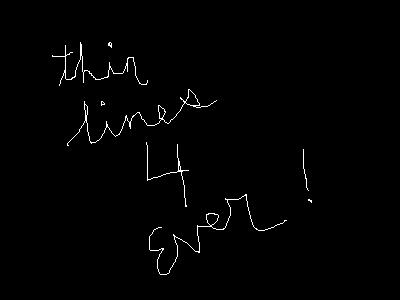 thin
lines
4
Ever!